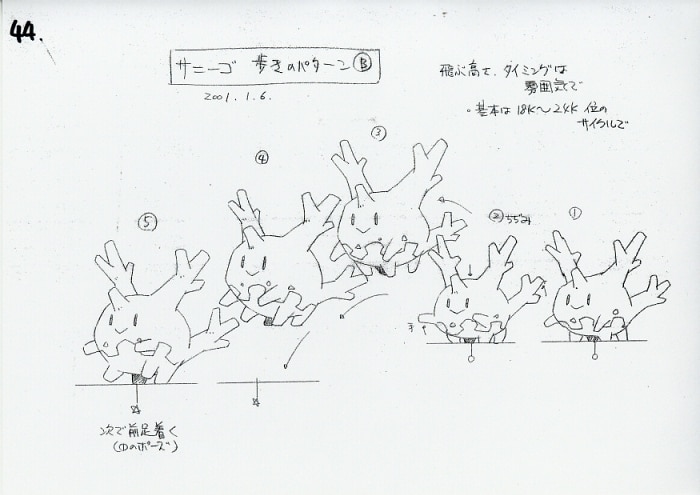 44.
サニーゴ 歩きのパターン Ⓑ
2001.1.6.
飛ぶ高さ、タイミングは
雰囲気で
・基本は18K〜24K位の
サイクルで
③
④
⑤
② ちぢみ
①
次で前足着く
(①のポーズ)